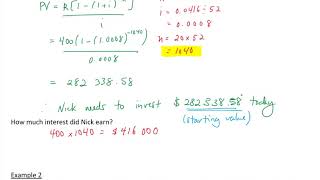 PV = R[1-(1+i)⁻ⁿ]
i
= 400(1-(1.0008)⁻¹⁰⁴⁰)
0.0008
= 282 338.58
i = 0.0416÷52
= 0.0008
n = 20×52
= 1040
∴ Nick needs to invest $ 282 338.58 today
(starting value)
How much interest did Nick earn?
400 × 1040 = $ 416 000
Example 2